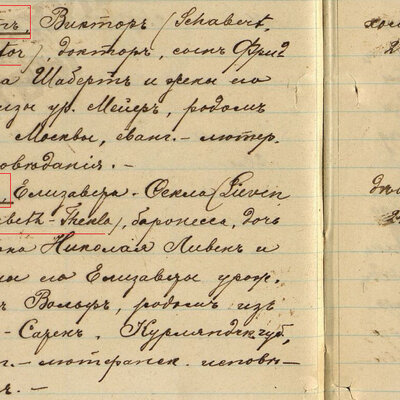 ртъ, Викторъ (Schabert,
tor), докторъ, сынъ Фрид
ха Шабертъ и жены его
изы ур. Мейеръ, родомъ
Москвы, еванг.-лютер.
овѣданія. -
Елизавета-Фекла (Lieven
abeth-Thekla), баронесса, дочь
она Николая Ливенъ и
ны его Елизаветы урож.
ъ Вольфъ, родомъ изъ
-Сакенъ, Курляндск губ,
г.-лютеранск. исповѣ-
я. -